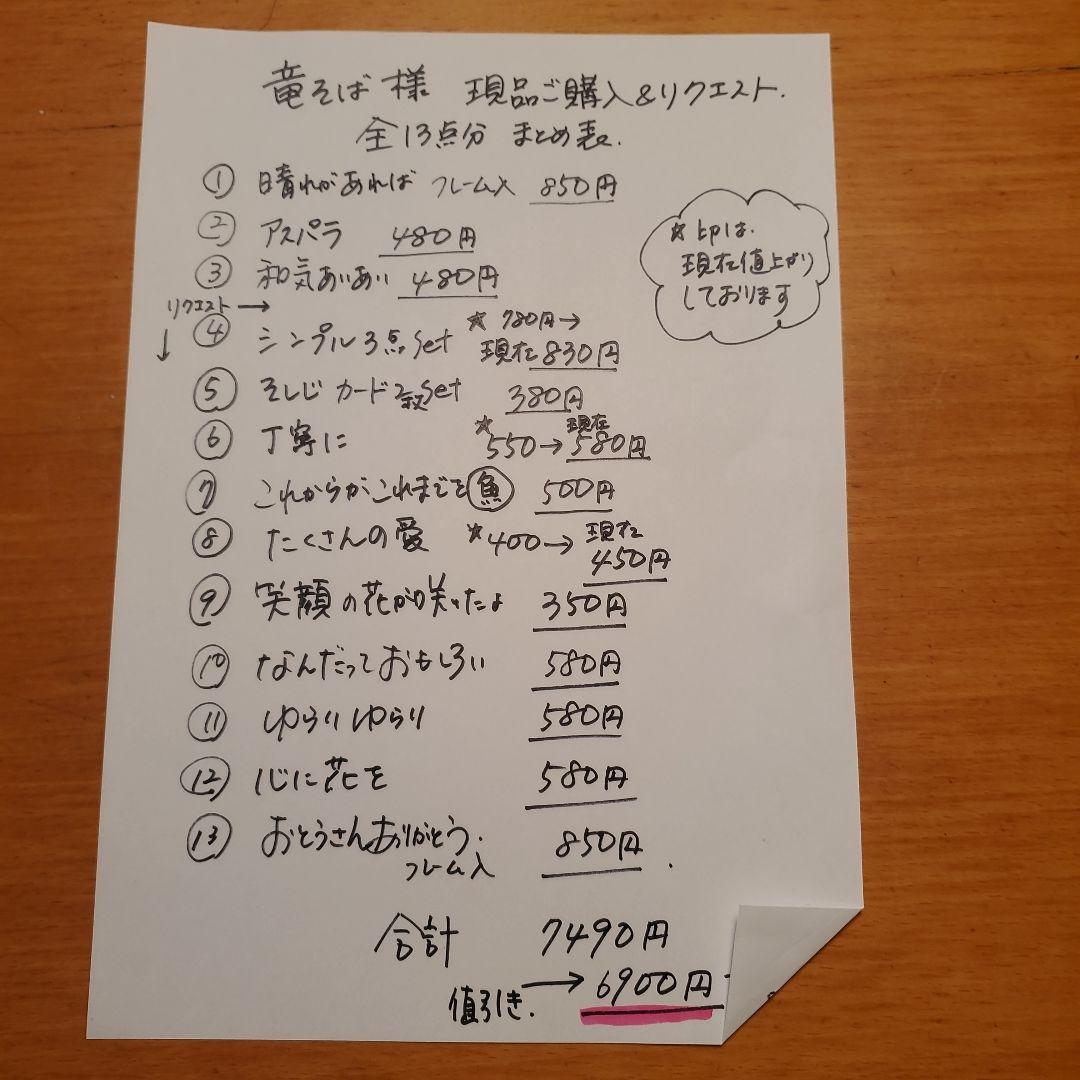 竜そば様 現品ご購入&リクエスト.
全13点分 まとめ表.
① 晴れがあれば フレーム入 850円
② アスパラ 480円
③ 和気あいあい 480円
リクエスト→
↓
④ シンプル3点set ☆780円→
現在830円
⑤ そしじカード2枚set 380円
⑥ 丁寧に ☆550→現在580円
⑦ これからがこれまでを 魚 500円
⑧ たくさんの愛 ☆400→現在
450円
⑨ 笑顔の花が咲いたよ 350円
⑩ なんだっておもしろい 580円
⑪ ゆらりゆらり 580円
⑫ 心に花を 580円
⑬ おとうさんありがとう.
フレーム入 850円.
合計 7490円
値引き. → 6900円
☆印は、
現在値上がり
しております